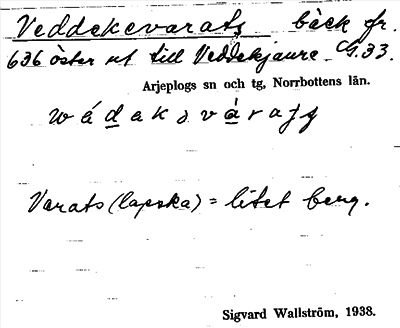 Veddekevarats, bäck fr.
636 öster ut till Veddekjaure G.33.
Arjeplogs sn och tg, Norrbottens län.
Varats (lapska) = litet berg.
Sigvard Wallström, 1938.